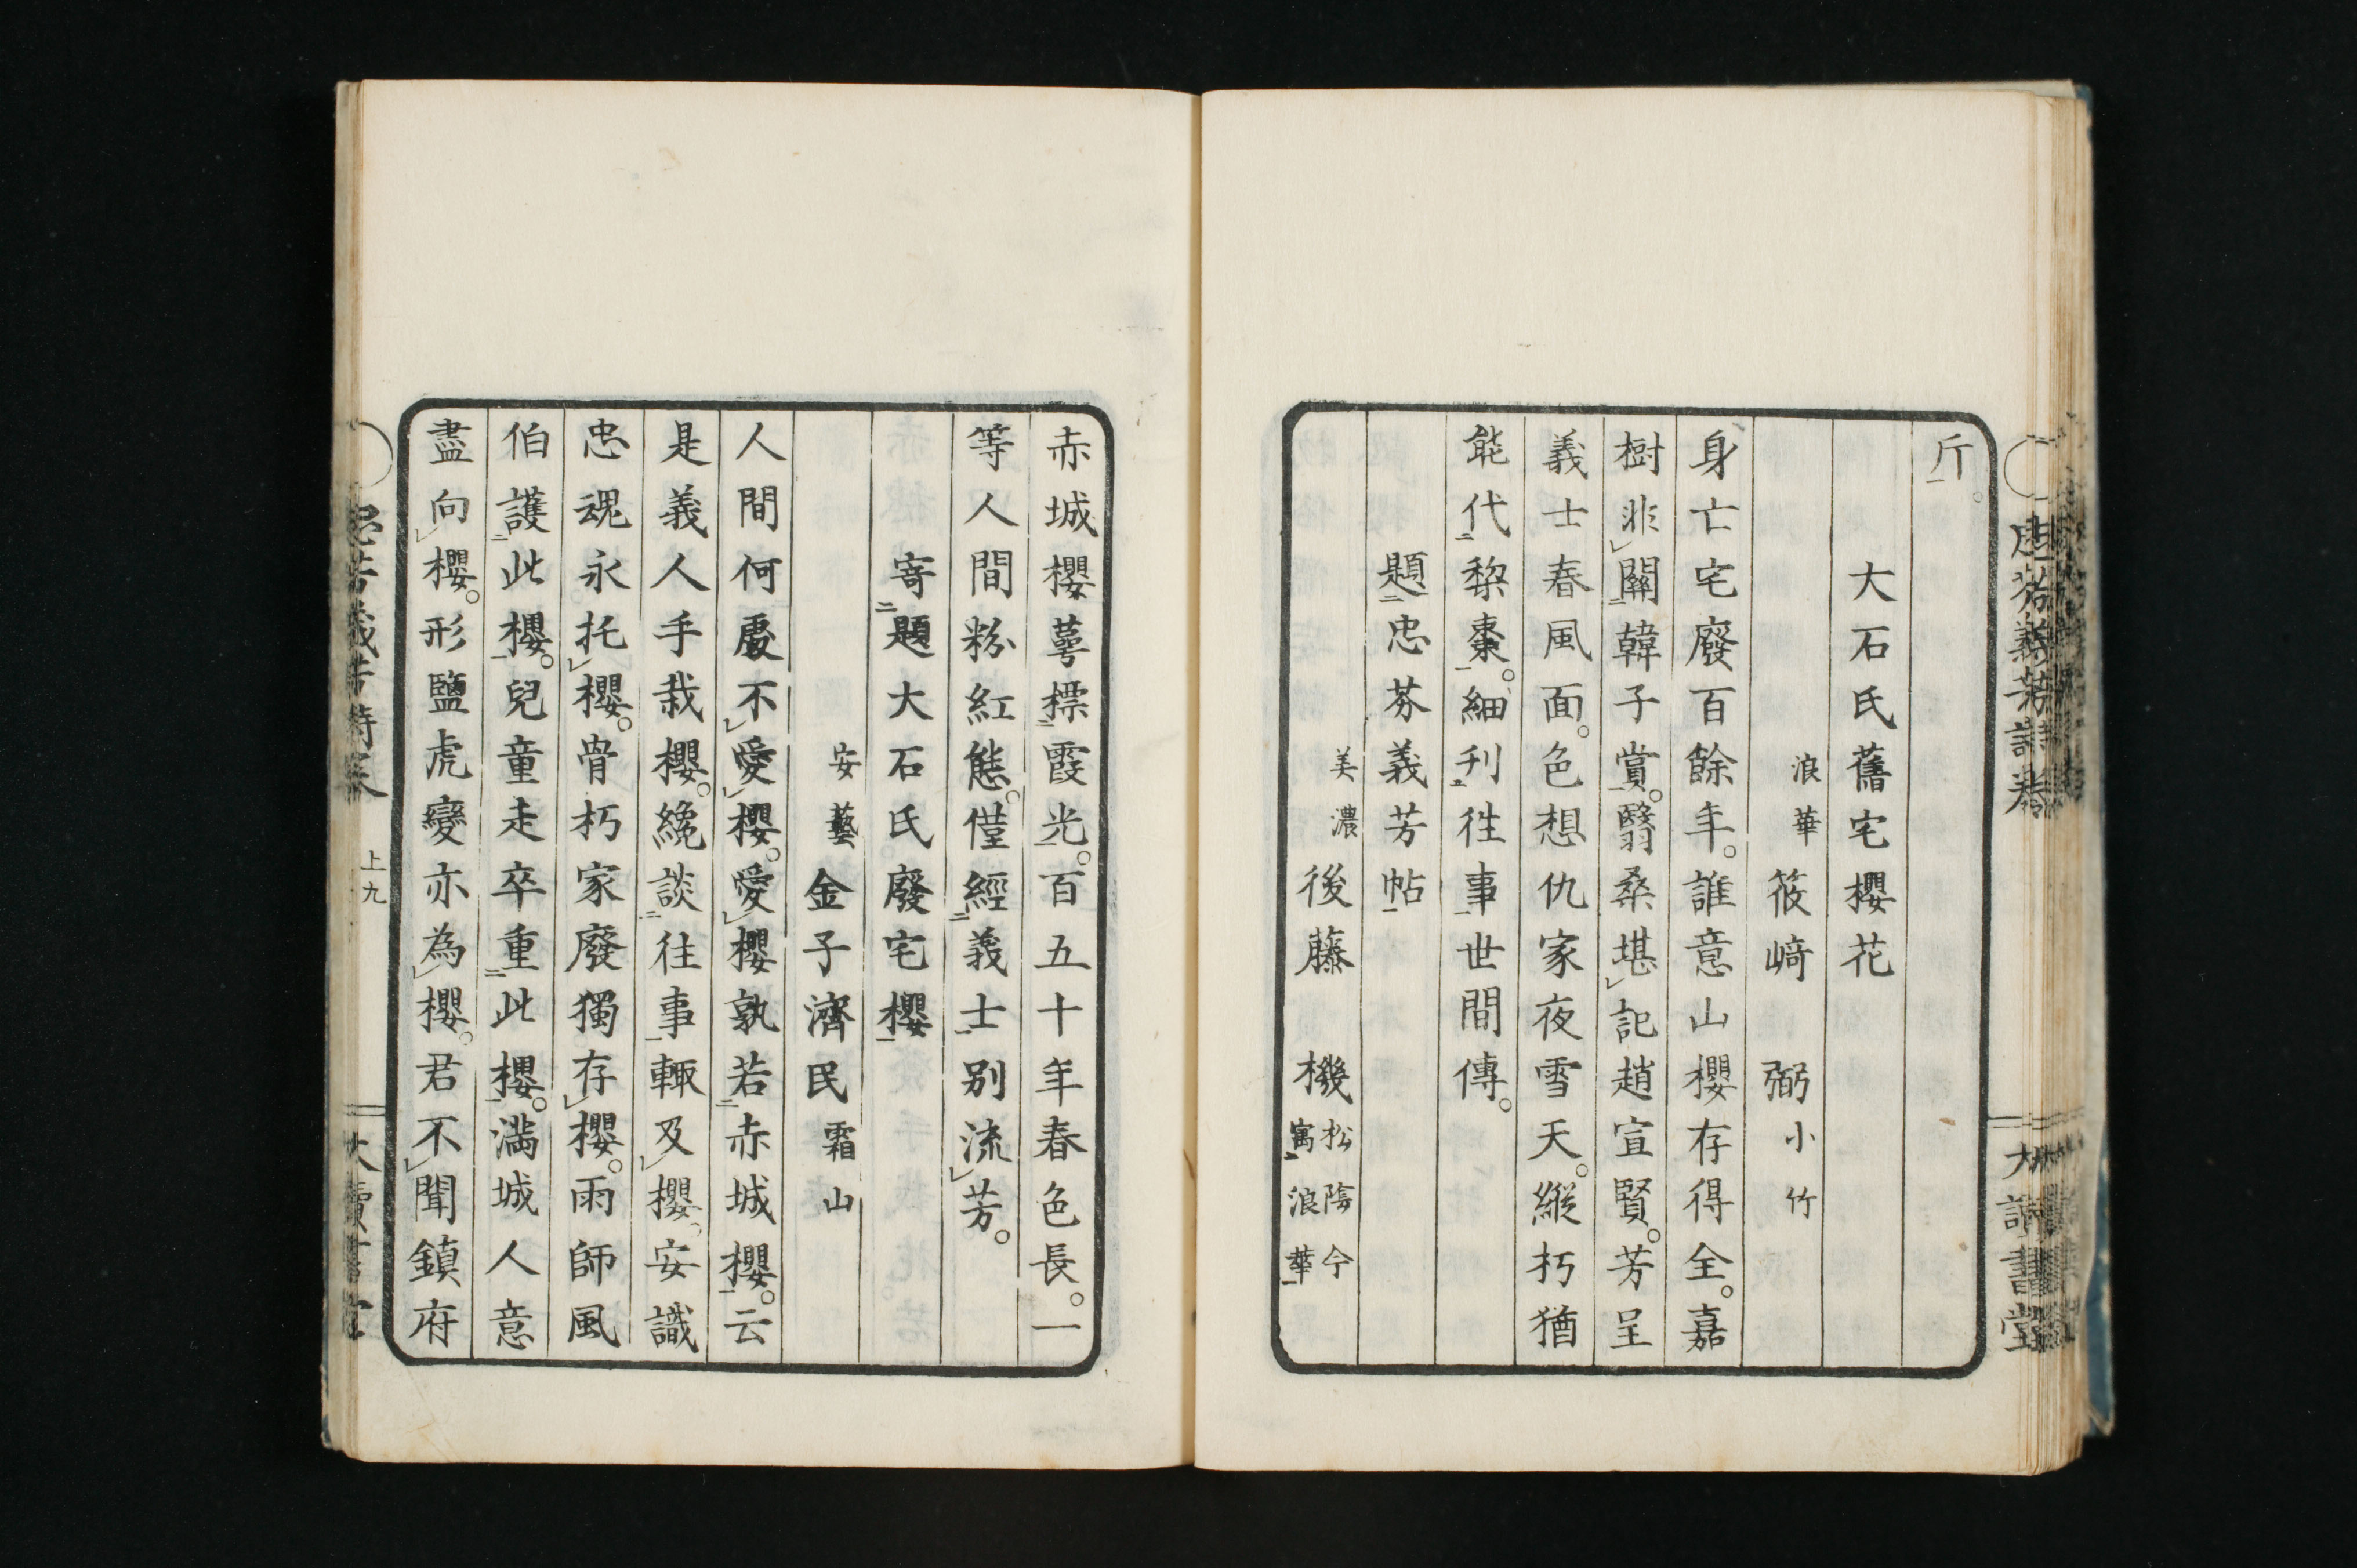 斤。
大石氏舊宅櫻花
浪華 筱﨑 弼 小竹
身亡宅廢百餘年。誰意山櫻存得全。嘉
樹非關韓子賞。翳桑堪記趙宣賢。芳呈
義士春風面。色想仇家夜雪天。縱朽猶
能代黎棗。細刊徃事世間傳。
題忠芬義芳帖
美濃 後藤 機 松陰今寓浪華
赤城櫻萼標霞光。百五十年春色長。一
等人間粉紅態。僅經義士別流芳。
寄題大石氏廢宅櫻
安藝 金子濟民 霜山
人間何處不愛櫻。愛櫻孰若赤城櫻。云
是義人手栽櫻。纔談往事輙及櫻。安識
忠魂永托櫻。骨朽家廢獨存櫻。雨師風
伯護此櫻。兒童走卒重此櫻。滿城人意
盡向櫻。形鹽虎變亦為櫻。君不聞鎮府
上九